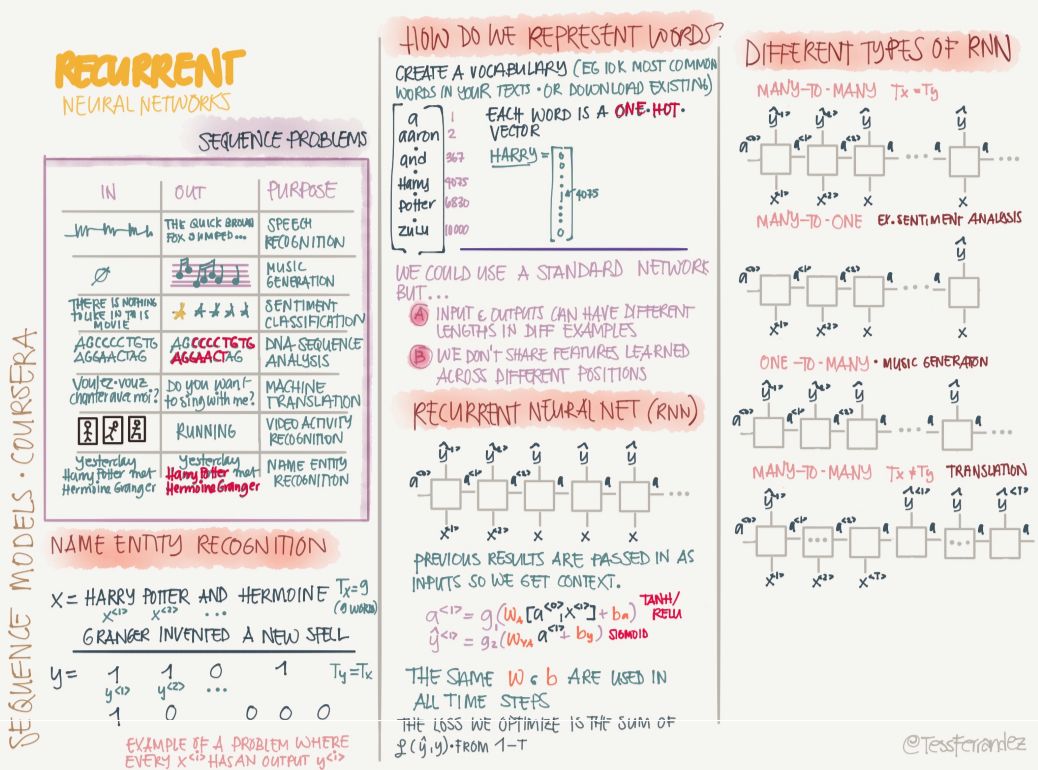 RECURRENT
NEURAL NETWORKS
SEQUENCE PROBLEMS
IN OUT PURPOSE
THE QUICK BROWN
FOX JUMPED...
SPEECH
RECOGNITION
∅
MUSIC
GENERATION
THERE IS NOTHING
TO LIKE IN THIS
MOVIE
SENTIMENT
CLASSIFICATION
AGCCCCTGTG
AGGAACTAG
AGCCCCTGTG
AGGAACTAG
DNA SEQUENCE
ANALYSIS
Voulez-vouz
chanter avec moi?
Do you want
to sing with me?
MACHINE
TRANSLATION
RUNNING
VIDEO ACTIVITY
RECOGNITION
Yesterday
Harry Potter met
Hermoine Granger
Yesterday
Harry Potter met
Hermoine Granger
NAME ENTITY
RECOGNITION
SEQUENCE MODELS · COURSERA
NAME ENTITY RECOGNITION
X = HARRY POTTER AND HERMOINE Tx=9
x<1> x<2> ... (9 WORDS)
GRANGER INVENTED A NEW SPELL
y = 1 1 0 1 Ty=Tx
y<1> y<2> ...
1 0 0 0 0
EXAMPLE OF A PROBLEM WHERE
EVERY x<i> HAS AN OUTPUT y<i>
HOW DO WE REPRESENT WORDS?
CREATE A VOCABULARY (EG 10K MOST COMMON
WORDS IN YOUR TEXTS · OR DOWNLOAD EXISTING)
a 1
aaron 2
and 367
Harry 4075
Potter 6830
zulu 10000
EACH WORD IS A ONE·HOT·
VECTOR
HARRY = 0 0 1 0 4075
WE COULD USE A STANDARD NETWORK
BUT...
A INPUT & OUTPUTS CAN HAVE DIFFERENT
LENGTHS IN DIFF EXAMPLES
B WE DON'T SHARE FEATURES LEARNED
ACROSS DIFFERENT POSITIONS
RECURRENT NEURAL NET (RNN)
ŷ<1> ŷ<2> ŷ ŷ ŷ
a<0> a<1> a<2> a a ...
x<1> x<2> x x x
PREVIOUS RESULTS ARE PASSED IN AS
INPUTS SO WE GET CONTEXT.
a<1> = g₁(WA[a<0>,x<1>] + ba) TANH/
RELU
ŷ<1> = g₂(WYA a<1> + by) SIGMOID
THE SAME W & b ARE USED IN
ALL TIME STEPS
THE LOSS WE OPTIMIZE IS THE SUM OF
ℒ(ŷ,y) · FROM 1-T
DIFFERENT TYPES OF RNN
MANY-TO-MANY Tx = Ty
ŷ<1> ŷ<2> ŷ ŷ
a<0> a<1> a<2> a ... a ...
x<1> x<2> x x
MANY-TO-ONE EX. SENTIMENT ANALYSIS
ŷ
a<0> a<1> a<2> a ... a
x<1> x<2> x x
ONE-TO-MANY · MUSIC GENERATION
ŷ<1> ŷ<2> ŷ ŷ
a<0> a<1> a<2> a ... a ...
x
MANY-TO-MANY Tx ≠ Ty TRANSLATION
ŷ<1> ŷ ŷ<T>
a<0> a<1> ... a<2> a a ... a a
x<1> x<2> x<T>
@TessFerrandez